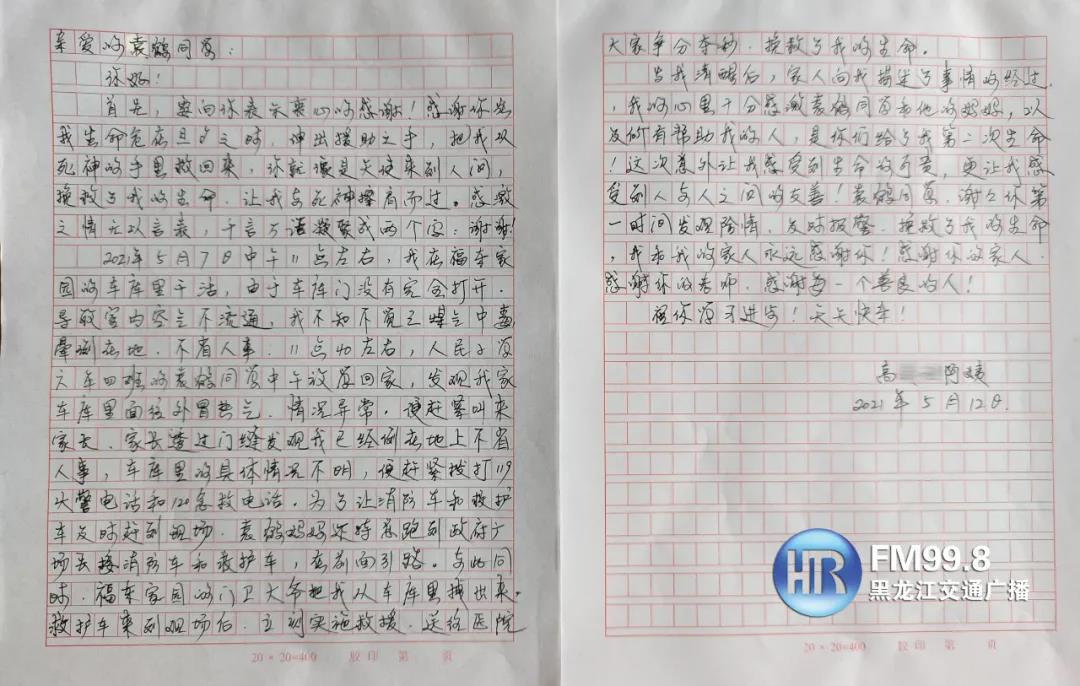 亲爱的袁鹤同学：
你好！
首先，要向你表示衷心的感谢！感谢你在
我生命危在旦夕之时，伸出援助之手，把我从
死神的手里救回来，你就像是天使来到人间，
挽救了我的生命，让我与死神擦肩而过。感激
之情无以言表，千言万语凝聚成两个字：谢谢！
2021年5月7日中午11点左右，我在福东家
园的车库里干活，由于车库门没有完全打开，
导致室内空气不流通，我不知不觉已煤气中毒
晕倒在地，不省人事。11点40左右，人民小学
六年四班的袁鹤同学中午放学回家，发现我家
车库里面往外冒热气，情况异常，便赶紧叫来
家长。家长透过门缝发现我已经倒在地上不省
人事，车库里的具体情况不明，便赶紧拨打119
火警电话和120急救电话。为了让消防车和救护
车及时赶到现场，袁鹤妈妈还特意跑到政府广
场去接消防车和救护车，在前面引路。与此同
时，福东家园的门卫大爷把我从车库里拽出来。
救护车来到现场后，立刻实施救援，送往医院
20×20=400 胶印 第 页
大家争分夺秒，挽救了我的生命。
当我清醒后，家人向我描述了事情的经过
，我的心里十分感激袁鹤同学和他的妈妈，以
及所有帮助我的人，是你们给了我第二次生命
！这次意外让我感受到生命的可贵，更让我感
受到人与人之间的友善！袁鹤同学，谢谢你第
一时间发现险情，及时报警，挽救了我的生命
，我和我的家人永远感谢你！感谢你的家人，
感谢你的老师，感谢每一个善良的人！
祝你学习进步！天天快乐！
高 阿姨
2021年5月12日.
HR FM99.8
黑龙江交通广播
20×20=400 胶印 第 页